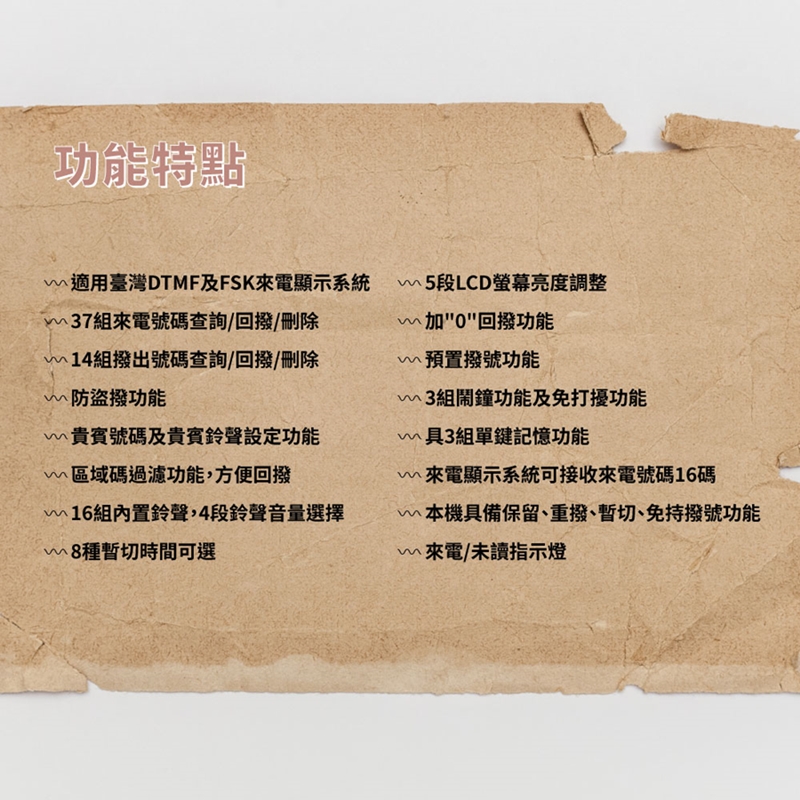 功能特點
適用臺灣DTMF及FSK來電顯示系統
37組來電號碼查詢/回撥/刪除
14組撥出號碼查詢/回撥/刪除
防盜撥功能
貴賓號碼及貴賓鈴聲設定功能
區域碼過濾功能,方便回撥
16組內置鈴聲,4段鈴聲音量選擇
8種暫切時間可選
5段LCD螢幕亮度調整
加"0"回撥功能
預置撥號功能
3組鬧鐘功能及免打擾功能
具3組單鍵記憶功能
來電顯示系統可接收來電號碼16碼
本機具備保留、重撥、暫切、免持撥號功能
來電/未讀指示燈